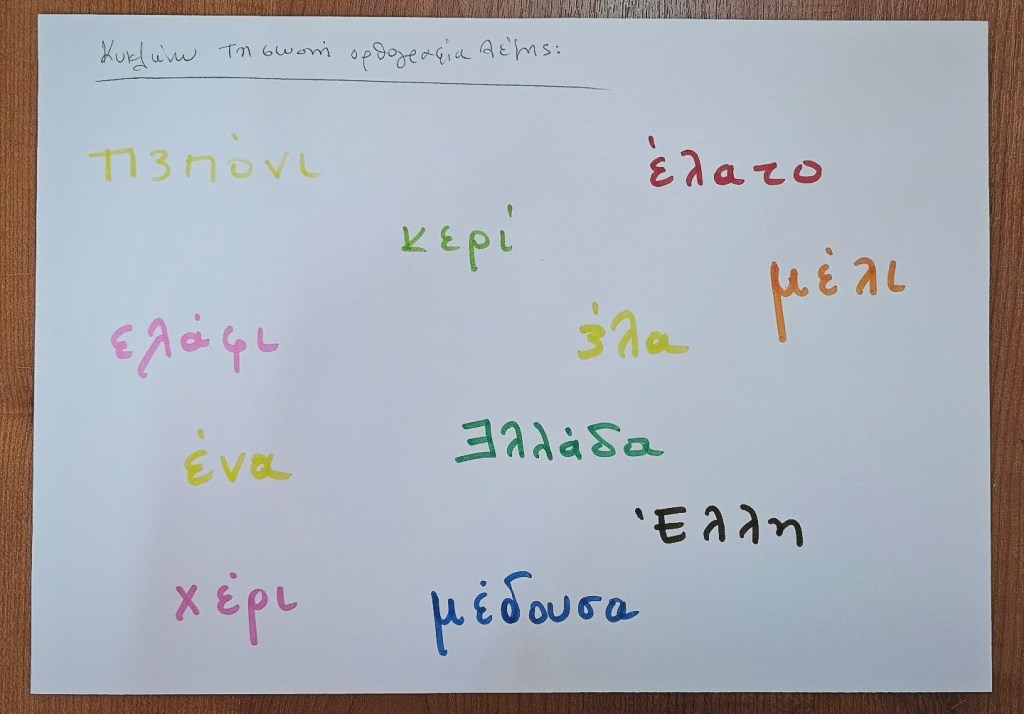 Κυκλώνω τη σωστή ορθογραφία λέξης:
πɜπόνι
έλατο
κερί
μέλι
ελάφι
ɜ́λα
ένα
Ǝλλάδα
Έλλη
χέρι
μέδουσα